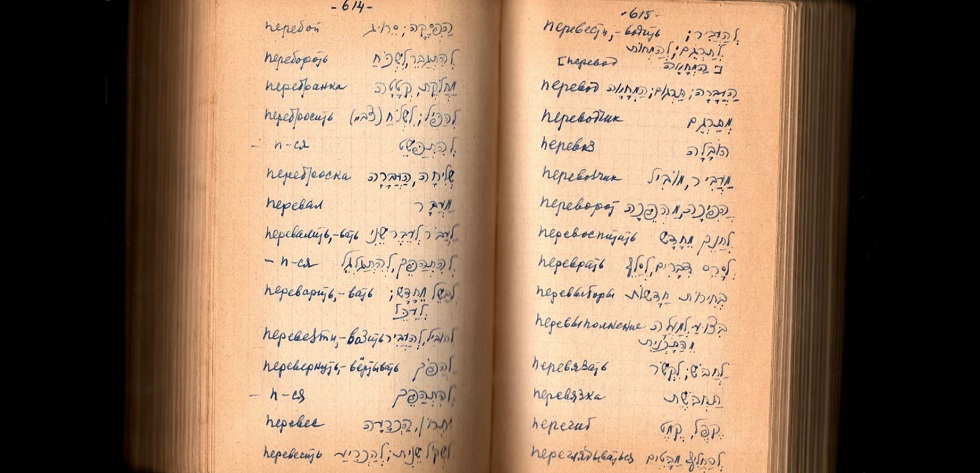 -614-
перебой הַפְסָקָה; סֵרוּג
перебороть לְהִתְגַּבֵּר, 
перебранка מַחֲלֹקֶת, קְטָטָה
перебросить לְהַפִּיל; לִשְׁלֹחַ
- п-ся לְהִתְפַּשֵּׁט
переброска שְׁלִיחָה, הַעֲבָרָה
перевал מַעֲבָר
перевалить, -вать לַעֲבֹר לְעֵבֶר שֵׁנִי
- п-ся לְהִתְהַפֵּךְ, לְהִתְגַּלְגֵּל
переварить, -вать לְבַשֵּׁל מֵחָדָשׁ;
לְעַכֵּל
перевезти, -возить לְהוֹבִיל, לְהַעֲבִיר
перевернуть, -вёртывать לַהֲפֹךְ
- п-ся לְהִתְהַפֵּךְ
перевес יִתְרוֹן, הַכְרָעָה
перевесить לִשְׁקֹל שֵׁנִית; לְהַכְרִיעַ
-615-
перевести, -водить לְהַעֲבִיר;
לְתַרְגֵּם; לְהַמְחוֹת
[перевод הַמְחָאָה
перевод הַעֲבָרָה; תַּרְגּוּם; הַמְחָאָה
переводчик מְתַרְגֵּם
перевоз הוֹבָלָה
перевозчик מַעֲבִיר, מוֹבִיל
переворот הֲפִיכָה, מַהְפֵּכָה
перевоспитать לְחַנֵּךְ מֵחָדָשׁ
переврать לְסָרֵס דְּבָרִים, לְסַלֵּף
перевыборы בְּחִירוֹת חֲדָשׁוֹת
перевыполнение בִּצּוּעַ לְמַעְלָה
מֵהַתָּכְנִית
перевязать לַחֲבֹשׁ; לִקְשֹׁר
перевязка תַּחְבֹּשֶׁת
перегиб קֵפֶל, קֶמֶט
переглядываться לְהַחֲלִיף מַבָּטִים